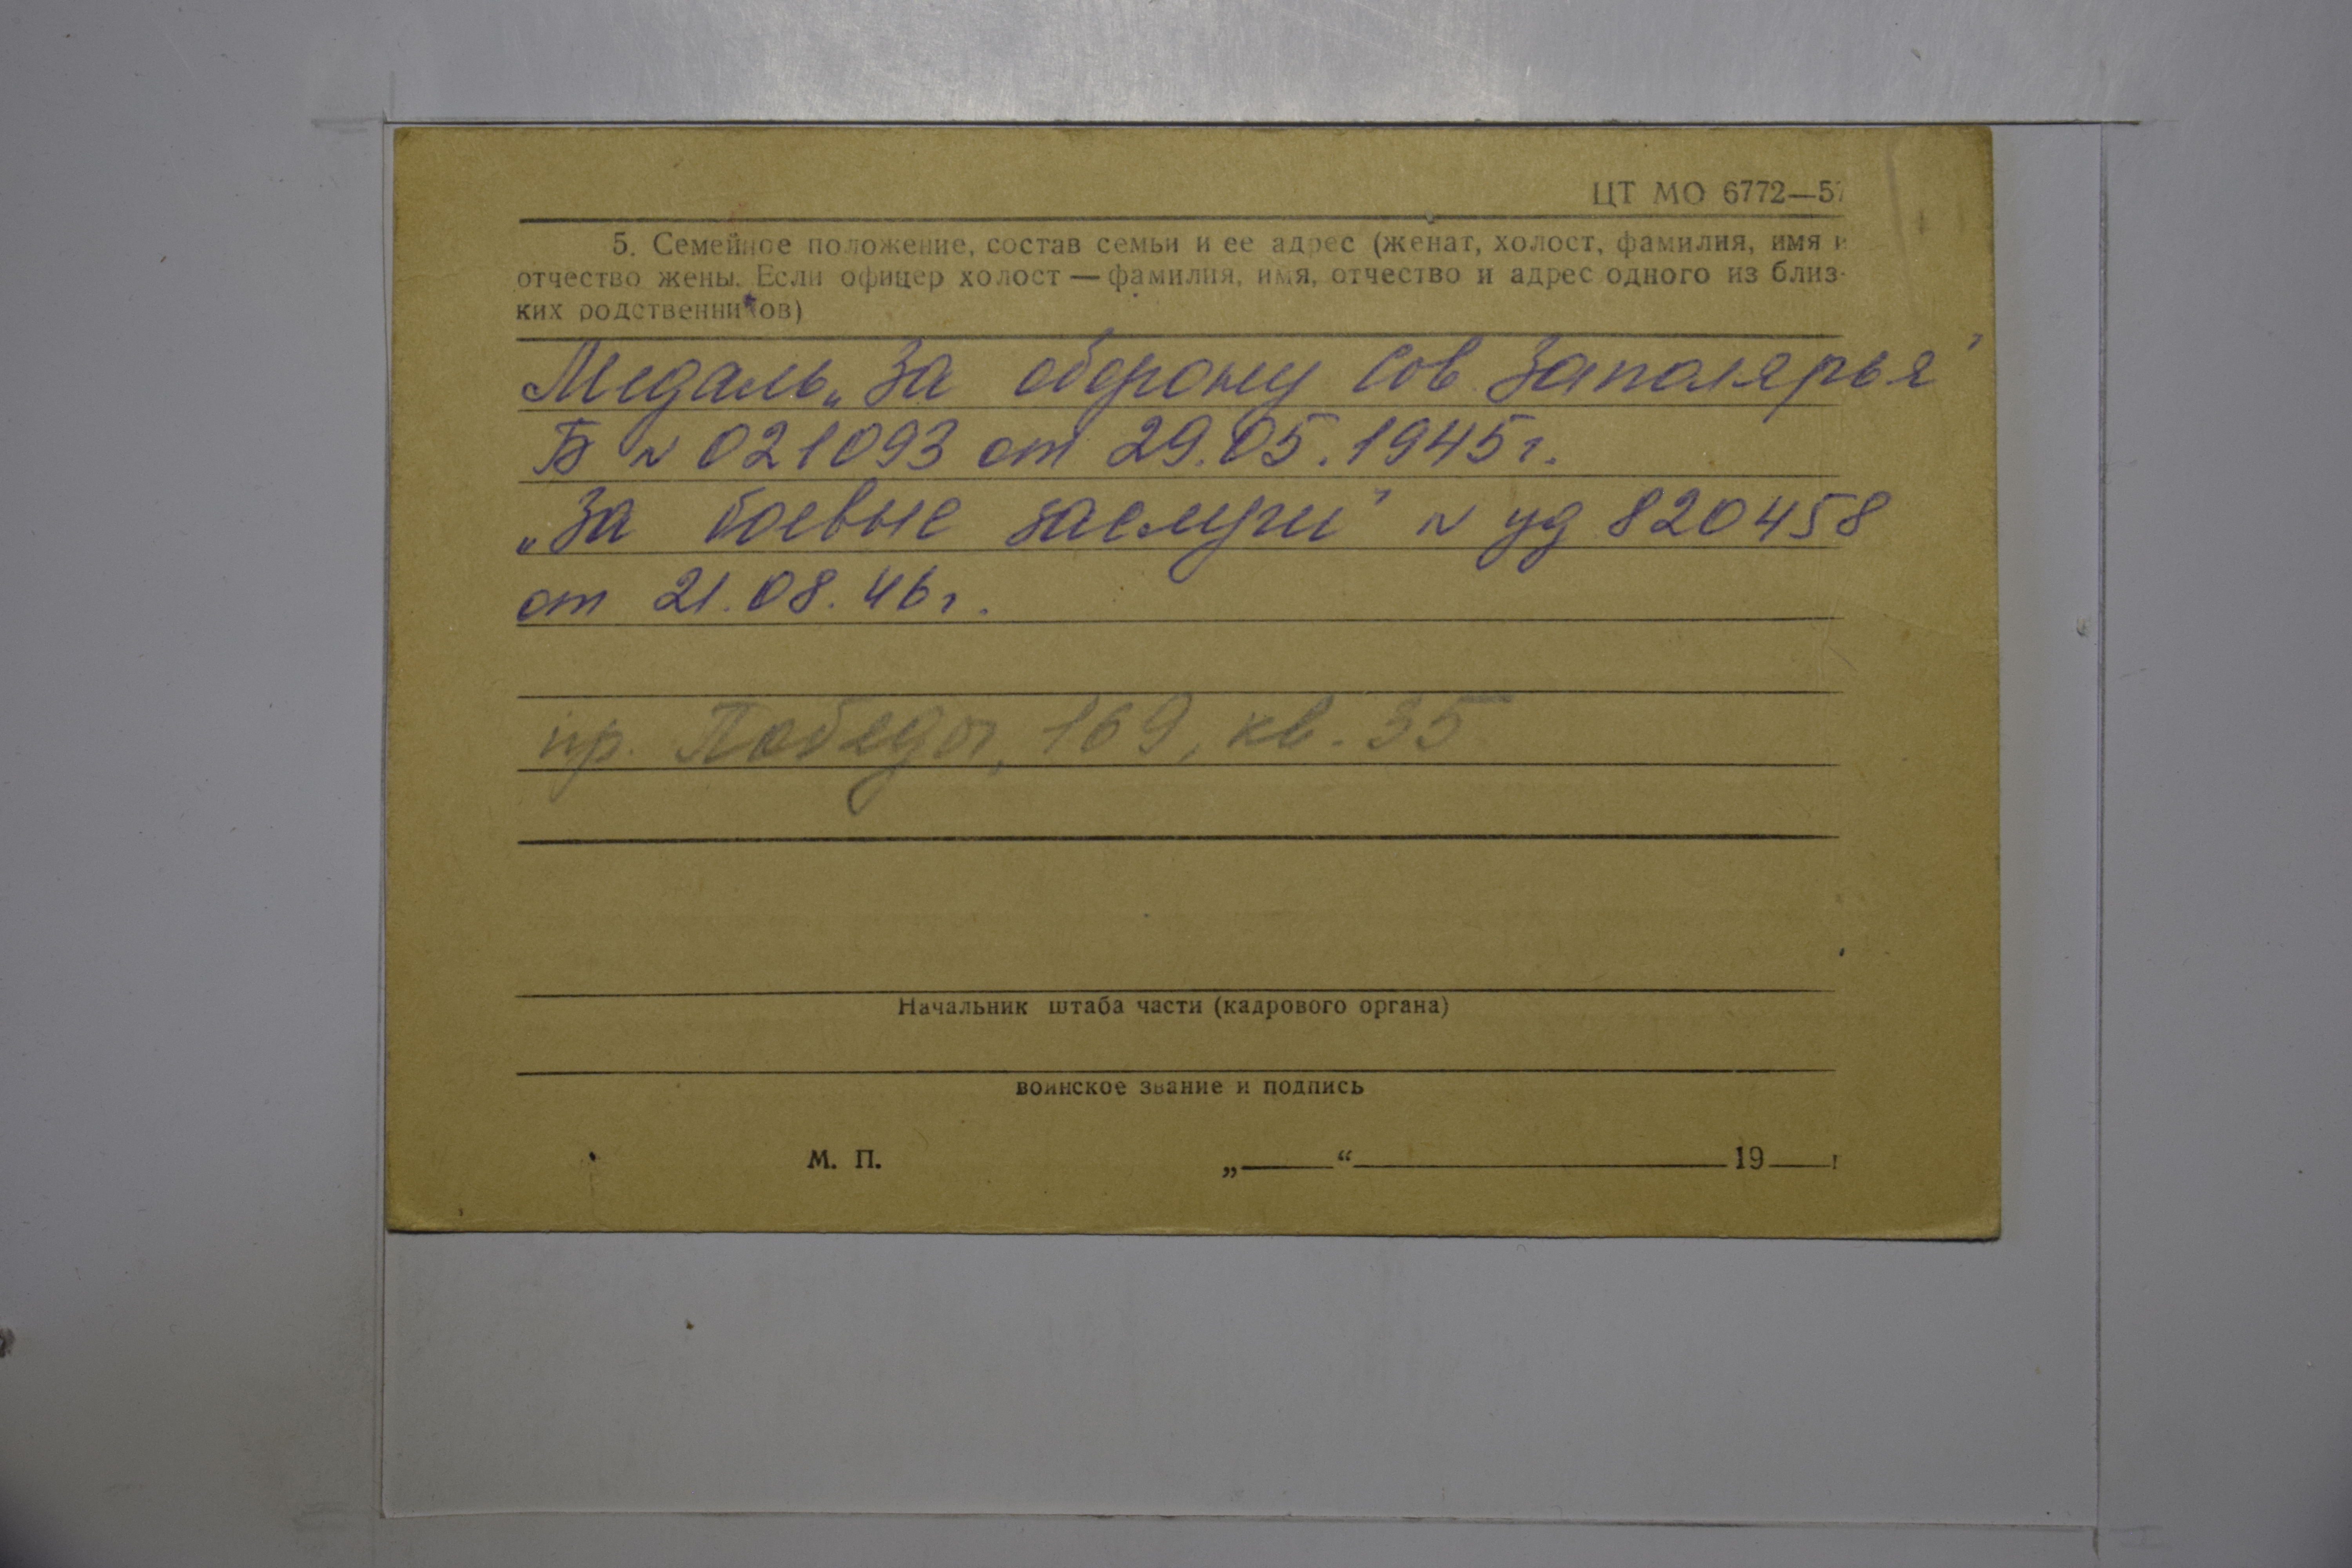 ЦТ МО 6772—57
5. Семейное положение, состав семьи и ее адрес (женат, холост, фамилия, имя и
отчество жены. Если офицер холост — фамилия, имя, отчество и адрес одного из близ-
ких родственников)
Медаль „За оборону Сов Заполярья"
Б № 021093 от 29.05.1945г.
„За боевые заслуги" № уд 820458
от 21.08.46г.
пр. Победы, 169, кв. 35
Начальник штаба части (кадрового органа)
воинское звание и подпись
М. П. „ “ 19 г